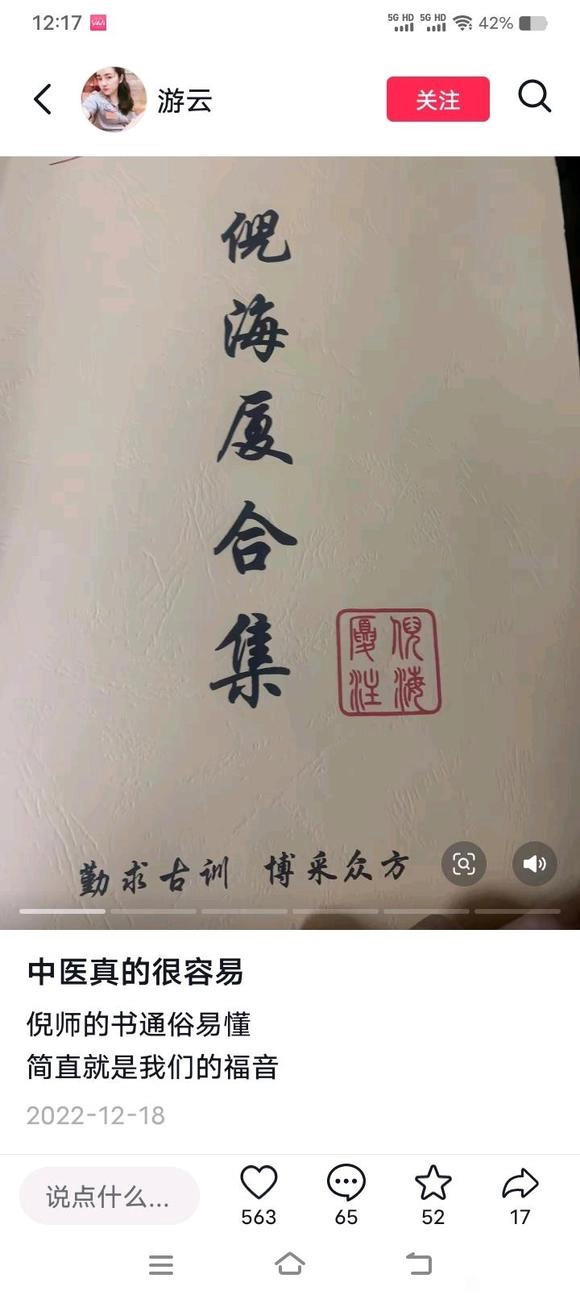 12:17
5G HD 5G HD 42%
游云
关注
倪海厦合集
倪海
厦注
勤求古训 博采众方
中医真的很容易
倪师的书通俗易懂
简直就是我们的福音
2022-12-18
说点什么...
563
65
52
17